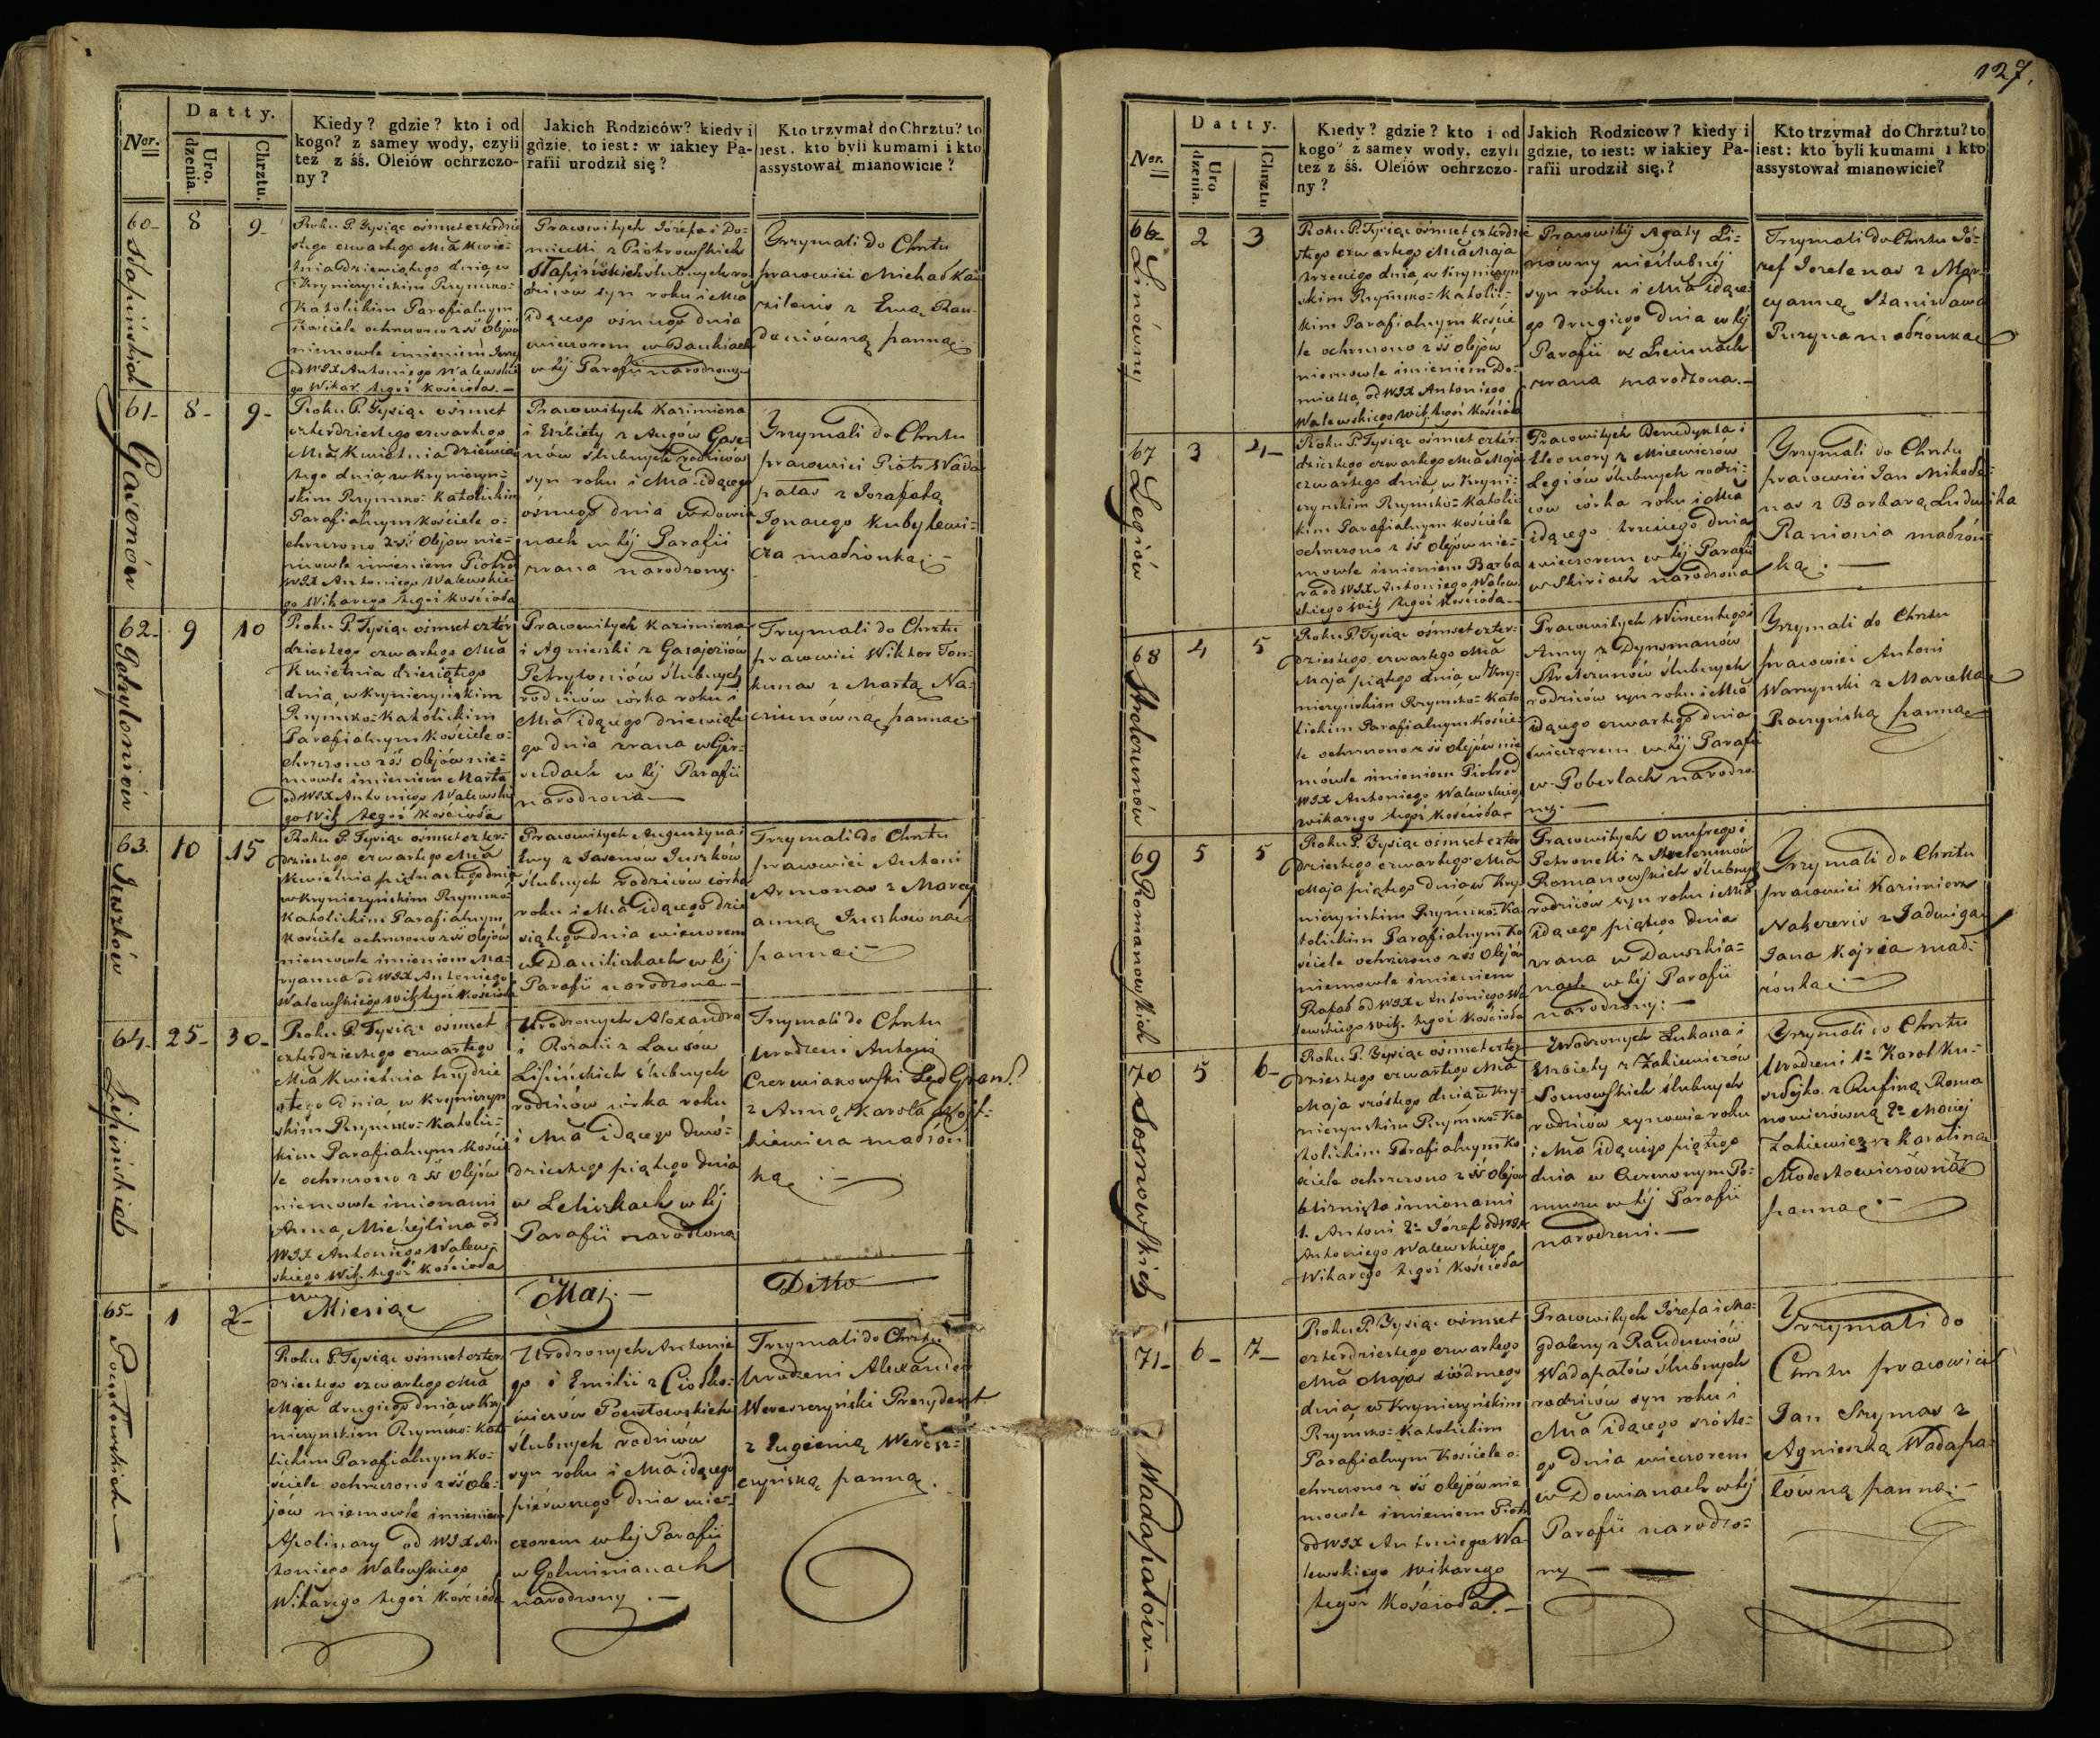 127.
Ner.
Datty.
Uro.
dzenia.
Chrztu.
Kiedy? gdzie? kto i od
kogo? z samey wody, czyli
też z śś. Oleiów ochrzczo-
ny?
Jakich Rodziców? kiedy i
gdzie, to iest: w iakiey Pa-
rafii urodził się?
Kto trzymał do Chrztu? to
iest. kto byli kumami i kto
assystował mianowicie?
60-
Słapińskich
8
9-
Roku P. Tysiąc ośmset czterdzie
stego czwartego Mca Kwie-
tnia dziewiątego dnia, w
Krynieczyńskim Rzymsko-
Katolickim Parafialnym
Kościele ochrzczono z śś Olejów
niemowle imieniem
od WJX Antoniego Walewskie
go Wikar. tegoż Kościoła.-
Pracowitych Józefa i Do-
micelli z Piotrowskich
Słapińskich ślubnych ro-
dziców syn roku i Mca
idącego ósmego dnia
wieczorem w
w téj Parafii narodzony
Trzymali do Chrztu
pracowici Michał
z Ewą
panną.
61-
Gasenów
8-
9-
Roku P. Tysiąc ośmset
czterdziestego czwartego
Mca Kwietnia dziewią
tego dnia, w Krynieczyń-
skim Rzymsko-Katolickim
Parafialnym Kościele o-
chrzczono z śś Olejów nie-
mowle imieniem Piotr od
WJX Antoniego Walewskie-
go Wikarego tegoż Kościoła
Pracowitych Kazimierza
i Elżbiety z Augów Gase-
nów ślubnych rodziców
syn roku i Mca idącego
ósmego dnia w Dowia
nach w téj Parafii
zrana narodzony.
Trzymali do Chrztu
pracowici Piotr Wada
pałas z Jozafatą
Ignacego Kubylewi-
cza małżonką.-
62-
Petrytoniów
9
10
Roku P. Tysiąc ośmset czter
dziestego czwartego Mca
Kwietnia dziesiątego
dnia, w Krynieczyńskim
Rzymsko-Katolickim
Parafialnym Kościele o-
chrzczono z śś Olejów nie-
mowle imieniem Marta
od WJX Antoniego Walewskie
go Wik. tegoż Kościoła
Pracowitych Kazimierza
i Agnieszki z
Petrytoniów ślubnych
rodziców córka roku i
Mca idącego dziewiąte
go dnia zrana w Gir-
nudach w téj Parafii
narodzona-
Trzymali do Chrztu
pracowici Wiktor Ton-
kunas z Martą Na-
panną
63.
Juszków
10
15
Roku P. Tysiąc ośmset czter-
dziestego czwartego Mca
Kwietnia piętnastego dnia
w Krynieczyńskim Rzymsko
Katolickim Parafialnym
Kościele ochrzczono z śś Olejów
niemowle imieniem Ma-
ryanna od WJX Antoniego
Walewskiego Wik. tegoż Kościoła
Pracowitych Augustyna i
Ewy z Jasenów Juszków
ślubnych rodziców córka
roku i Mca idącego dzie
siątego dnia wieczorem
w Daniliszkach w téj
Parafii narodzona-
Trzymali do Chrztu
pracowici Antoni
Armonas z Mary
anną Juszkówną
panną-
64-
Lipińskich
25-
30-
Roku P. Tysiąc ośmset
czterdziestego czwartego
Mca Kwietnia trzydzie
stego dnia, w Krynieczyń
skim Rzymsko-Katolic-
kim Parafialnym Kościé
le ochrzczono z śś Olejów
niemowle imionami
Anna, Michejlina od
WJX Antoniego Walew-
skiego Wik. tegoż Kościoła
Urodzonych Alexandra
i Rozalii z Lausów
Lipińskich ślubnych
rodziców córka roku
i Mca idącego dwó-
dziestego piątego dnia
w Lehiszkach w téj
Parafii narodzona
Trzymali do Chrztu
Urodzeni Antoni
Czerwiakowski Sęd Grani.
z Anną Karola Wojt-
kiewicza małżon
ką.-
Miesiąc
Maj.-
Ditto
65-
Poczotowskich-
1
2-
Roku P. Tysiąc ośmset czter
dziestego czwartego Mca
Maja drugiego dnia w Kry
nieczyńskim Rzymsko-Kato
lickim Parafialnym Ko-
ściele ochrzczono z śś Ole-
jów niemowle imieniem
Apolinary od WJX An
toniego Walewskiego
Wikarego tegoż Kościoła
Urodzonych Antonie
go i Emilii z Ciotko-
wiczów
ślubnych rodziców
syn roku i Mca idącego
piérwszego dnia wie-
czorem w téj Parafii
w Golminianach
narodzony.-
Trzymali do Chrztu
Urodzeni Alexander
Wereszczyński Prezydent.
z Eugenią Weresz-
czyńską panną.
Ner.
Datty.
Uro
dzenia.
Chrztu
Kiedy? gdzie? kto i od
kogo? z samey wody, czyli
też z śś. Oleiów ochrzczo-
ny?
Jakich Rodziców? kiedy i
gdzie, to iest: w iakiey Pa-
rafii urodził się.?
Kto trzymał do Chrztu? to
iest: kto byli kumami i kto
assystował mianowicie?
66-
Linówny
2
3
Roku P. Tysiąc ośmset czterdzie
stego czwartego Mca Maja
trzeciego dnia, w Krynieczyń
skim Rzymsko-Katolic-
kim Parafialnym Koście
le ochrzczono z śś Olejów
niemowle imieniem Do-
micella, od WJX Antoniego
Walewskiego Wik. tegoż Kościoła
Pracowitéj Agaty Li-
nówny nieślubnéj
syn roku i Mca idące-
go drugiego dnia w téj
Parafii w
zrana narodzona.-
Trzymali do Chrztu Jó-
zef z Mar-
cyanną Stanisława
małżonką
67
Legiów
3
4-
Roku P. Tysiąc ośmset czter-
dziestego czwartego Mca Maja
czwartego dnia w Kryni-
czyńskim Rzymsko-Katolic
kim Parafialnym Kościele
ochrzczono z śś Olejów nie-
mowle imieniem Barba
ra od WJX Antoniego Walew-
skiego Wik. tegoż Kościoła-
Pracowitych Benedykta i
Eleonory z Micewiczów
Legiów ślubnych rodzi-
ców córka roku i Mca
idącego trzeciego dnia
wieczorem w téj Parafii
w Skiriach narodzona
Trzymali do Chrztu
pracowici Jan Mikoła-
nas z Barbarą Ludwika
małżon
ką.-
68
Strelczunów
4
5
Roku P. Tysiąc ośmset czter-
dziestego czwartego Mca
Maja piątego dnia, w Kry-
nieczyńskim Rzymsko-Kato
lickim Parafialnym Koście-
le ochrzczono z śś Olejów nie
mowle imieniem Piotr od
WJX Antoniego Walewskiego
wikarego tegoż Kościoła-
Pracowitych Wincentego i
Anny z Dynsmanów
Strelczunów ślubnych
rodziców syn roku i Mca
idącego czwartego dnia
wieczorem w téj Parafii
w Poberlach narodzo-
ny.-
Trzymali do Chrztu
pracowici Antoni
Warzynski z Marcellą
Raczyńską panną
69
Romanowskich
5
5
Roku P. Tysiąc ośmset czter
dziestego czwartego Mca
Maja piątego dnia w Kry-
nieczyńskim Rzymsko-Ka
tolickim Parafialnym Ko
ściele ochrzczono z śś Olejów
niemowle imieniem
Rafał od WJX Antoniego Wa
lewskiego Wik. tegoż Kościoła
Pracowitych Onufrego i
Petronelli z Strelczunów
Romanowskich ślubnych
rodziców syn roku i Mca
idącego piątego dnia
zrana w Dauszkia-
nach w téj Parafii
narodzony.-
Trzymali do Chrztu
pracowici Kazimierz
z Jadwigą
Jana małż-
żonką-
70
Sosnowskich
5
6-
Roku P. Tysiąc ośmset czter
dziestego czwartego Mca
Maja szóstego dnia w Kry-
nieczyńskim Rzymsko-Ka
tolickim Parafialnym Ko-
ściele ochrzczono z śś Olejów
bliźnięta imionami
1. Antoni 2e Józef od WJX
Antoniego Walewskiego
Wikarego tegoż Kościoła
Urodzonych Łukasza i
Elżbiety z Żakiewiczów
Sosnowskich ślubnych
rodziców synowie roku
i Mca idącego piątego
dnia w Czerwonym Po-
murzu w téj Parafii
narodzeni.-
Trzymali do Chrztu
Urodzeni 1e Karol Ku-
z Rufiną Roma
nowiczówną 2e Maciej
Żakiewicz z Karoliną
Modestowiczówną
panną.-
71-
Wadapałów.-
6-
7-
Roku P. Tysiąc ośmset
czterdziestego czwartego
Mca Maja siódmego
dnia, w Krynieczyńskim
Rzymsko-Katolickim
Parafialnym Kościele o-
chrzczono z śś Olejów nie
mowle imieniem Piotr
od WJX Antoniego Wa-
lewskiego Wikarego
tegoż Kościoła.-
Pracowitych Józefa i Ma-
gdaleny z Randuewiów
Wadapałów ślubnych
rodziców syn roku i
Mca idącego szóste-
go dnia wieczorem
w Dowianach w téj
Parafii narodzo-
ny-
Trzymali do
Chrztu pracowici
Jan Szymas z
Agnieszką Wadapa-
łówną panną.-